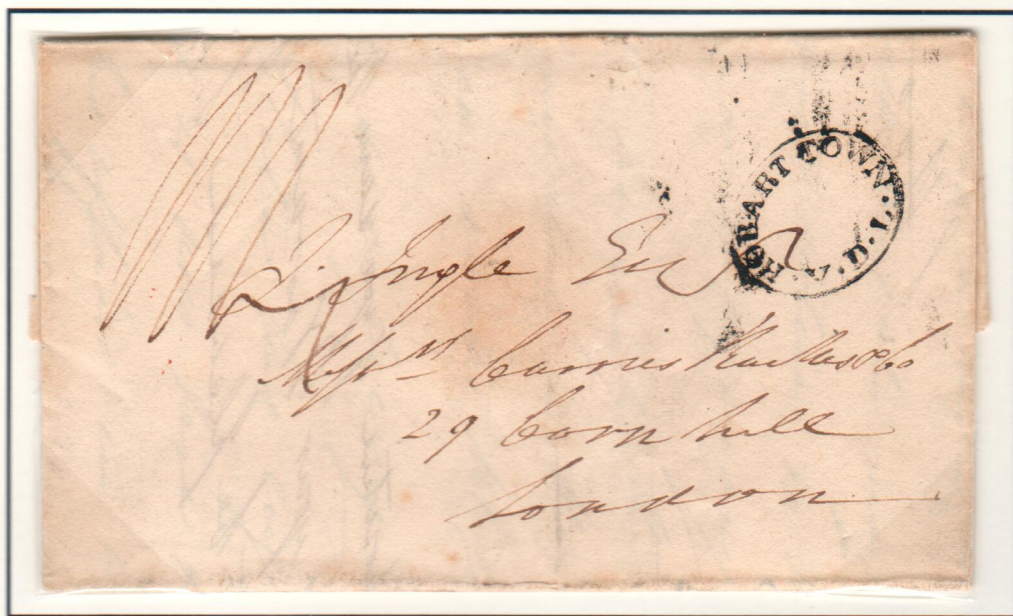 HOBART TOWN. V.D.L.
Ingle Esqr
Messrs Curries Raikes & Co
29 Corn hill
London